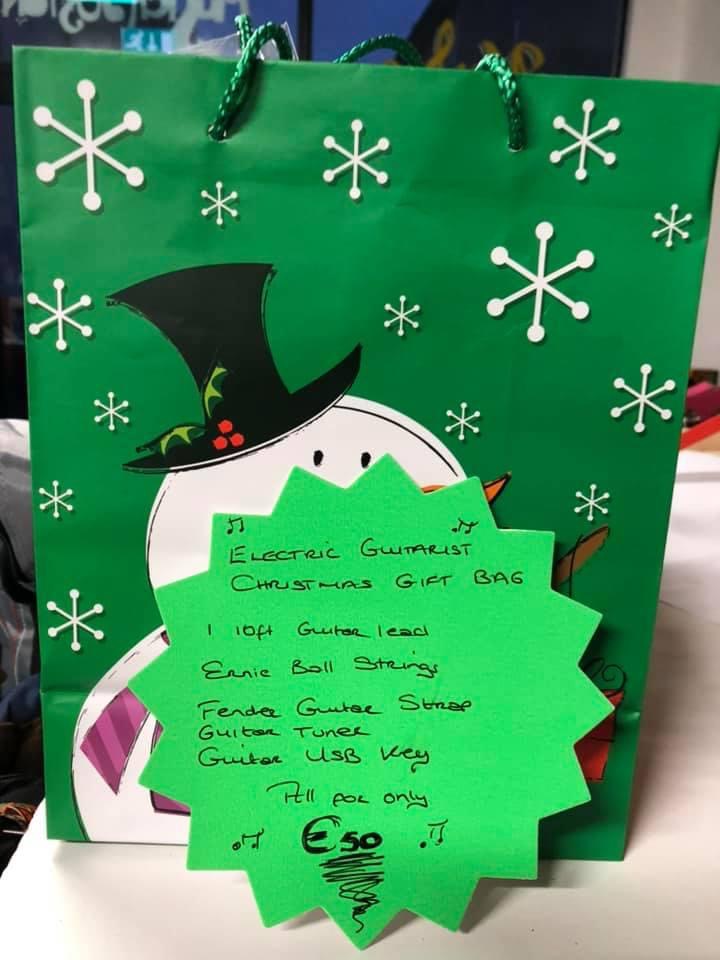 ELECTRIC GUITARIST
CHRISTMAS GIFT BAG
1 10ft Guitar lead
Ernie Ball Strings
Fender Guitar Strap
Guitar Tuner
Guitar USB Key
All for only
€50